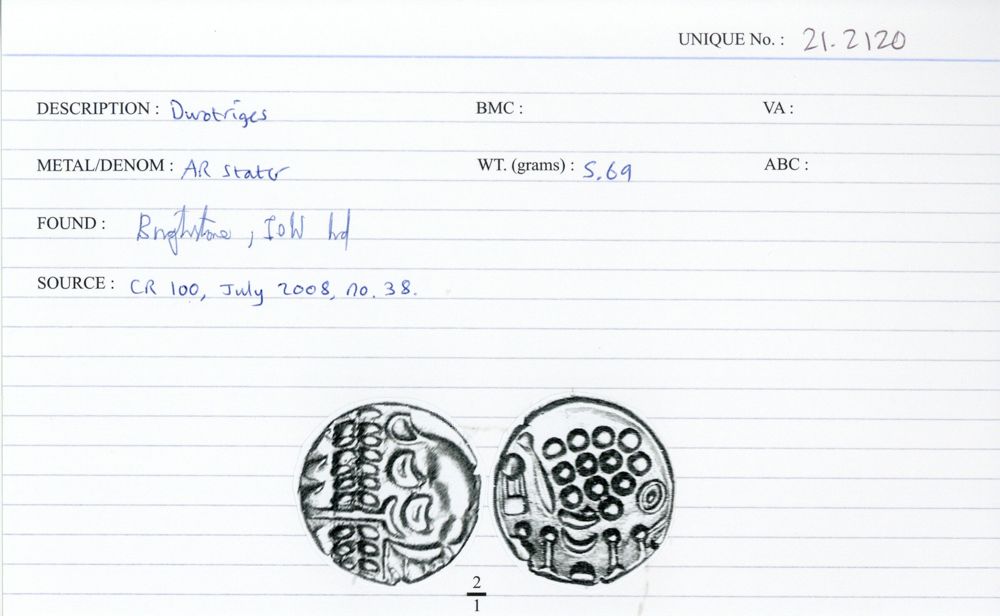 UNIQUE No. : 21.2120
DESCRIPTION : Durotriges BMC : VA :
METAL/DENOM : AR stater WT. (grams) : 5.69 ABC :
FOUND : Brighstone, IOW hd
SOURCE : CR 100, July 2008, no. 38.
2
1